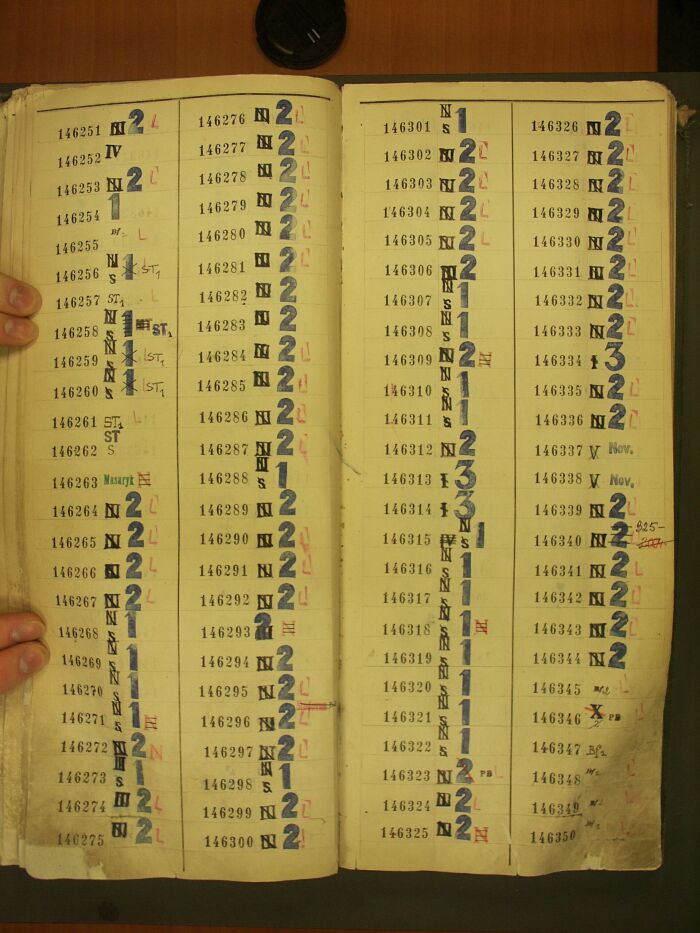 146251 N 2 L
146252 IV
146253 N 2 L
146254 1
146255 L
146256 N S 1 ST1
146257 ST1 L
146258 N S 1 ST1
146259 N S 1 L ST1
146260 N S 1 L ST1
146261 ST1 L
146262 ST S
146263 Masaryk III
146264 N 2 L
146265 N 2 L
146266 N 2 L
146267 N 2 L
146268 N S 1
146269 N S 1
146270 N S 1
146271 N S 1 III
146272 N 2 N
146273 N S 1
146274 N 2 L
146275 N 2 L
146276 N 2 L
146277 N 2 L
146278 N 2 L
146279 N 2 L
146280 N 2 L
146281 N 2 L
146282 N 2
146283 N 2
146284 N 2 L
146285 N 2 L
146286 N 2 L
146287 N 2 L
146288 N S 1
146289 N 2
146290 N 2 L
146291 N 2 L
146292 N 2 L
146293 2 III
146294 N 2
146295 N 2 L
146296 N 2 L
146297 N 2 L
146298 N S 1
146299 N 2 L
146300 N 2 L
146301 N S 1
146302 N 2 L
146303 N 2 L
146304 N 2 L
146305 N 2 L
146306 N 2
146307 N S 1
146308 N S 1
146309 N 2 III
146310 N S 1
146311 N S 1
146312 N 2
146313 I 3
146314 I 3
146315 IV N S 1
146316 N S 1
146317 N S 1
146318 N S 1 III
146319 N S 1
146320 N S 1
146321 N S 1
146322 N S 1
146323 N 2 PB L
146324 N 2 L
146325 N 2 III
146326 N 2 L
146327 N 2 L
146328 N 2 L
146329 N 2 L
146330 N 2 L
146331 N 2 L
146332 N 2 L
146333 N 2 L
146334 I 3
146335 N 2 L
146336 N 2 L
146337 V Nov.
146338 V Nov.
146339 N 2 L
146340 N 2 -925-
146341 N 2 L
146342 N 2 L
146343 N 2 L
146344 N 2
146345 L
146346 X PB
146347 Bf2
146348 L
146349 L
146350 L